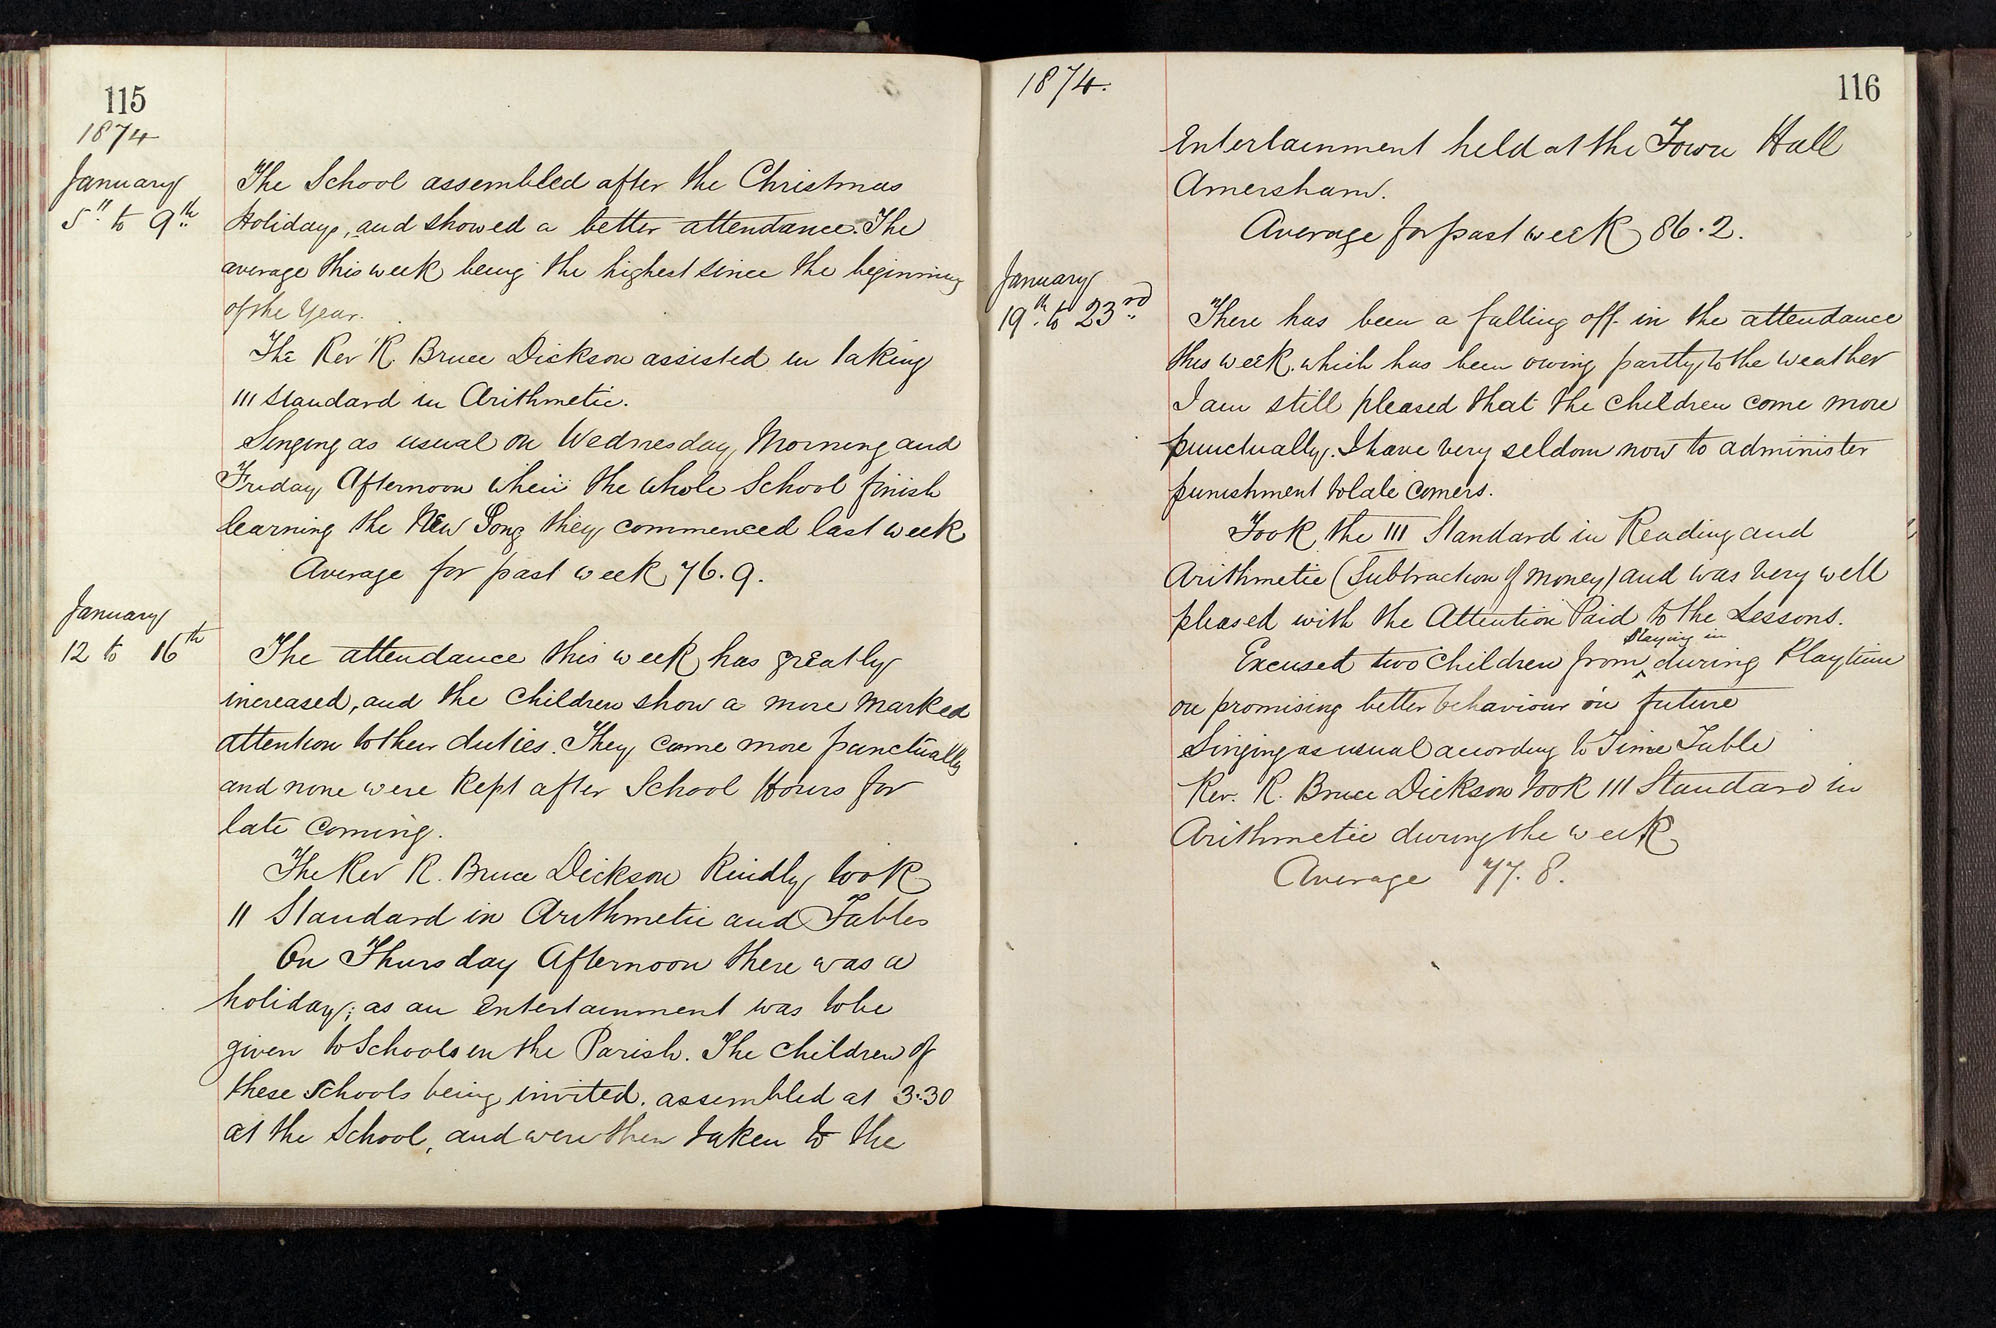 115
1874
January
5th to 9th
The School assembled after the Christmas
Holidays, and showed a better attendance. The
average this week being the highest since the beginning
of the Year.
The Rev R. Bruce Dickson assisted in taking
III Standard in Arithmetic.
Singing as usual on Wednesday Morning and
Friday Afternoon when the whole School finish
learning the New Song they commenced last week
Average for past week 76.9.
January
12 to 16th
The attendance this week has greatly
increased, and the children show a more marked
attention to their duties. They come more punctually
and none were kept after School Hours for
late coming.
The Rev R. Bruce Dickson kindly took
II Standard in Arithmetic and Tables
On Thursday Afternoon there was a
holiday; as an Entertainment was to be
given to Schools in the Parish. The children of
these Schools being invited. assembled at 3.30
at the School, and were then taken to the
1874.
116
Entertainment held at the Town Hall
Amersham.
Average for past week 86.2.
January
19th to 23rd
There has been a falling off in the attendance
this week. which has been owing partly to the weather
I am still pleased that the children come more
punctually. I have very seldom now to administer
punishment to late comers.
Took the III Standard in Reading and
Arithmetic (Subtraction of Money) and was very well
pleased with the Attention Paid to the Lessons.
Staying in
Excused two children from ^ during Playtime
on promising better behaviour in future
Singing as usual according to Time Table
Rev. R. Bruce Dickson took III Standard in
Arithmetic during the week
Average 77.8.